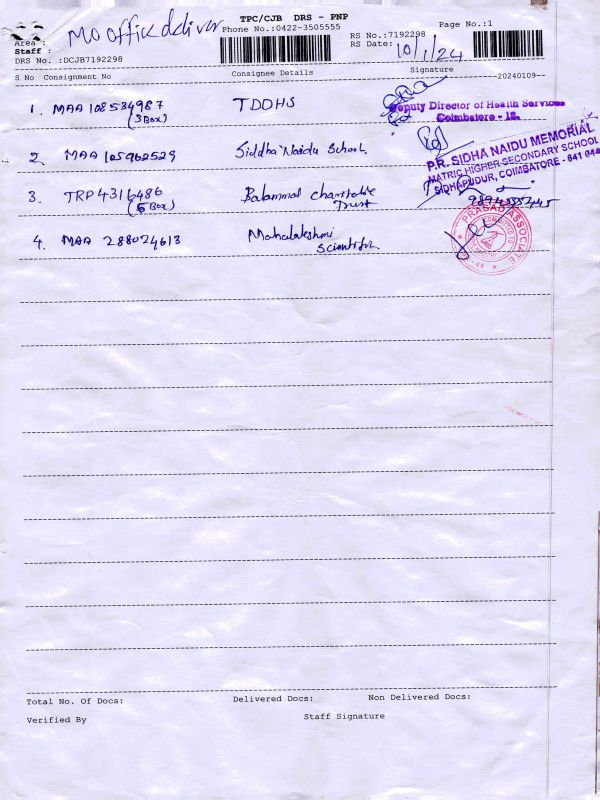 TPC/CJB DRS - PNP
Mo office deliver
Phone No.:0422-3505555
Page No.:1
RS No.:7192298
RS Date: 10/1/24
Area :
Staff :
DRS No. :DCJB7192298
S No Consignment No Consignee Details Signature
20240109
1. MAA 108534987 TDDHS
(3 Box)
Deputy Director of Health Services
Coimbatore - 18.
2. MAA 105962529 Siddha Naidu School.
P.R. SIDHA NAIDU MEMORIAL
MATRIC HIGHER SECONDARY SCHOOL
SIDHAPUDUR, COIMBATORE - 641 044
3. TRP 4316486 Balammal charitable
(5 Box) Trust
4. MAA 288024613 Mahalakshmi
Scientific
PRASAD ASSOCIATE
Total No. Of Docs: Delivered Docs: Non Delivered Docs:
Verified By Staff Signature